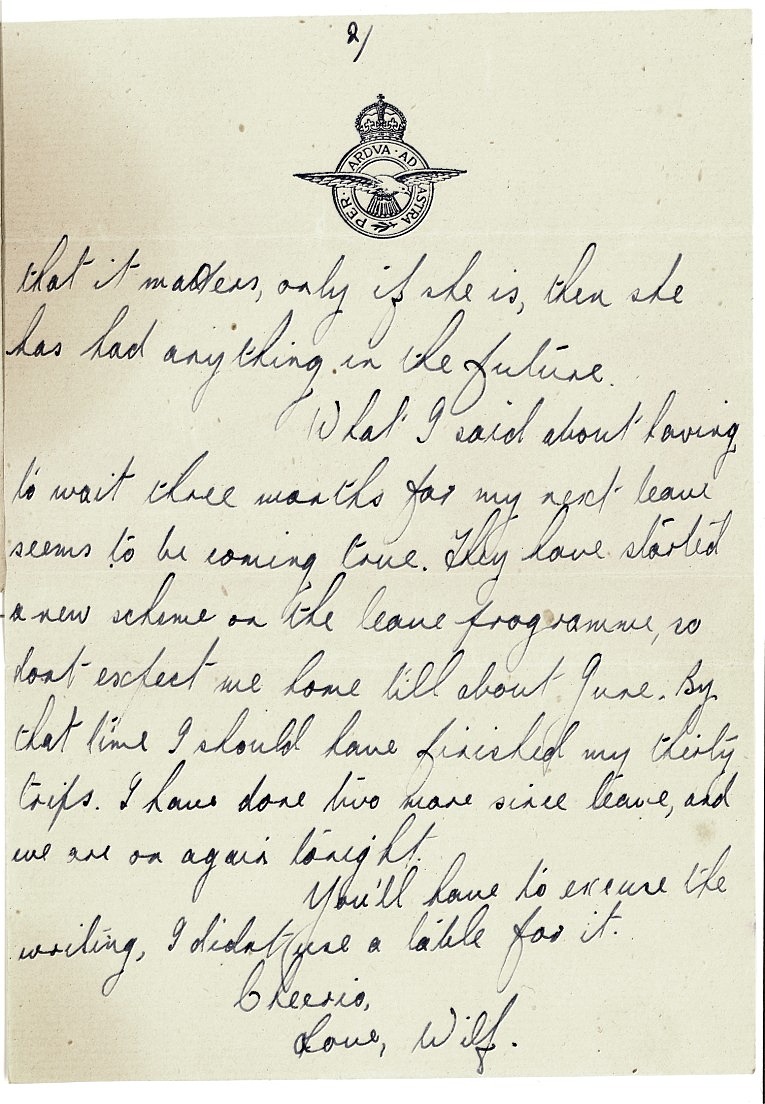 2/
PER · ARDVA · AD ASTRA
that it matters, only if she is, then she
has had anything in the future.
What I said about having
to wait three months for my next leave
seems to be coming true. They have started
a new scheme on the leave programme, so
dont expect me home till about June. By
that time I should have finished my thirty
trips. I have done two more since leave, and
we are on again tonight.
You'll have to excuse the
writing, I didnt use a table for it.
Cheerio,
Love, Wilf.